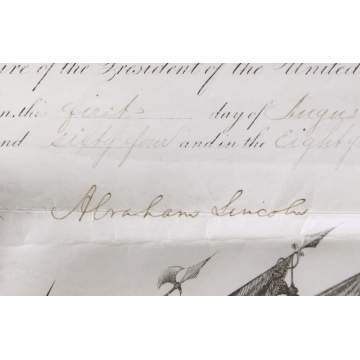 ure of the President of the United
n, the first day of Augus
nd sixty four and in the Eighty
Abraham Lincoln